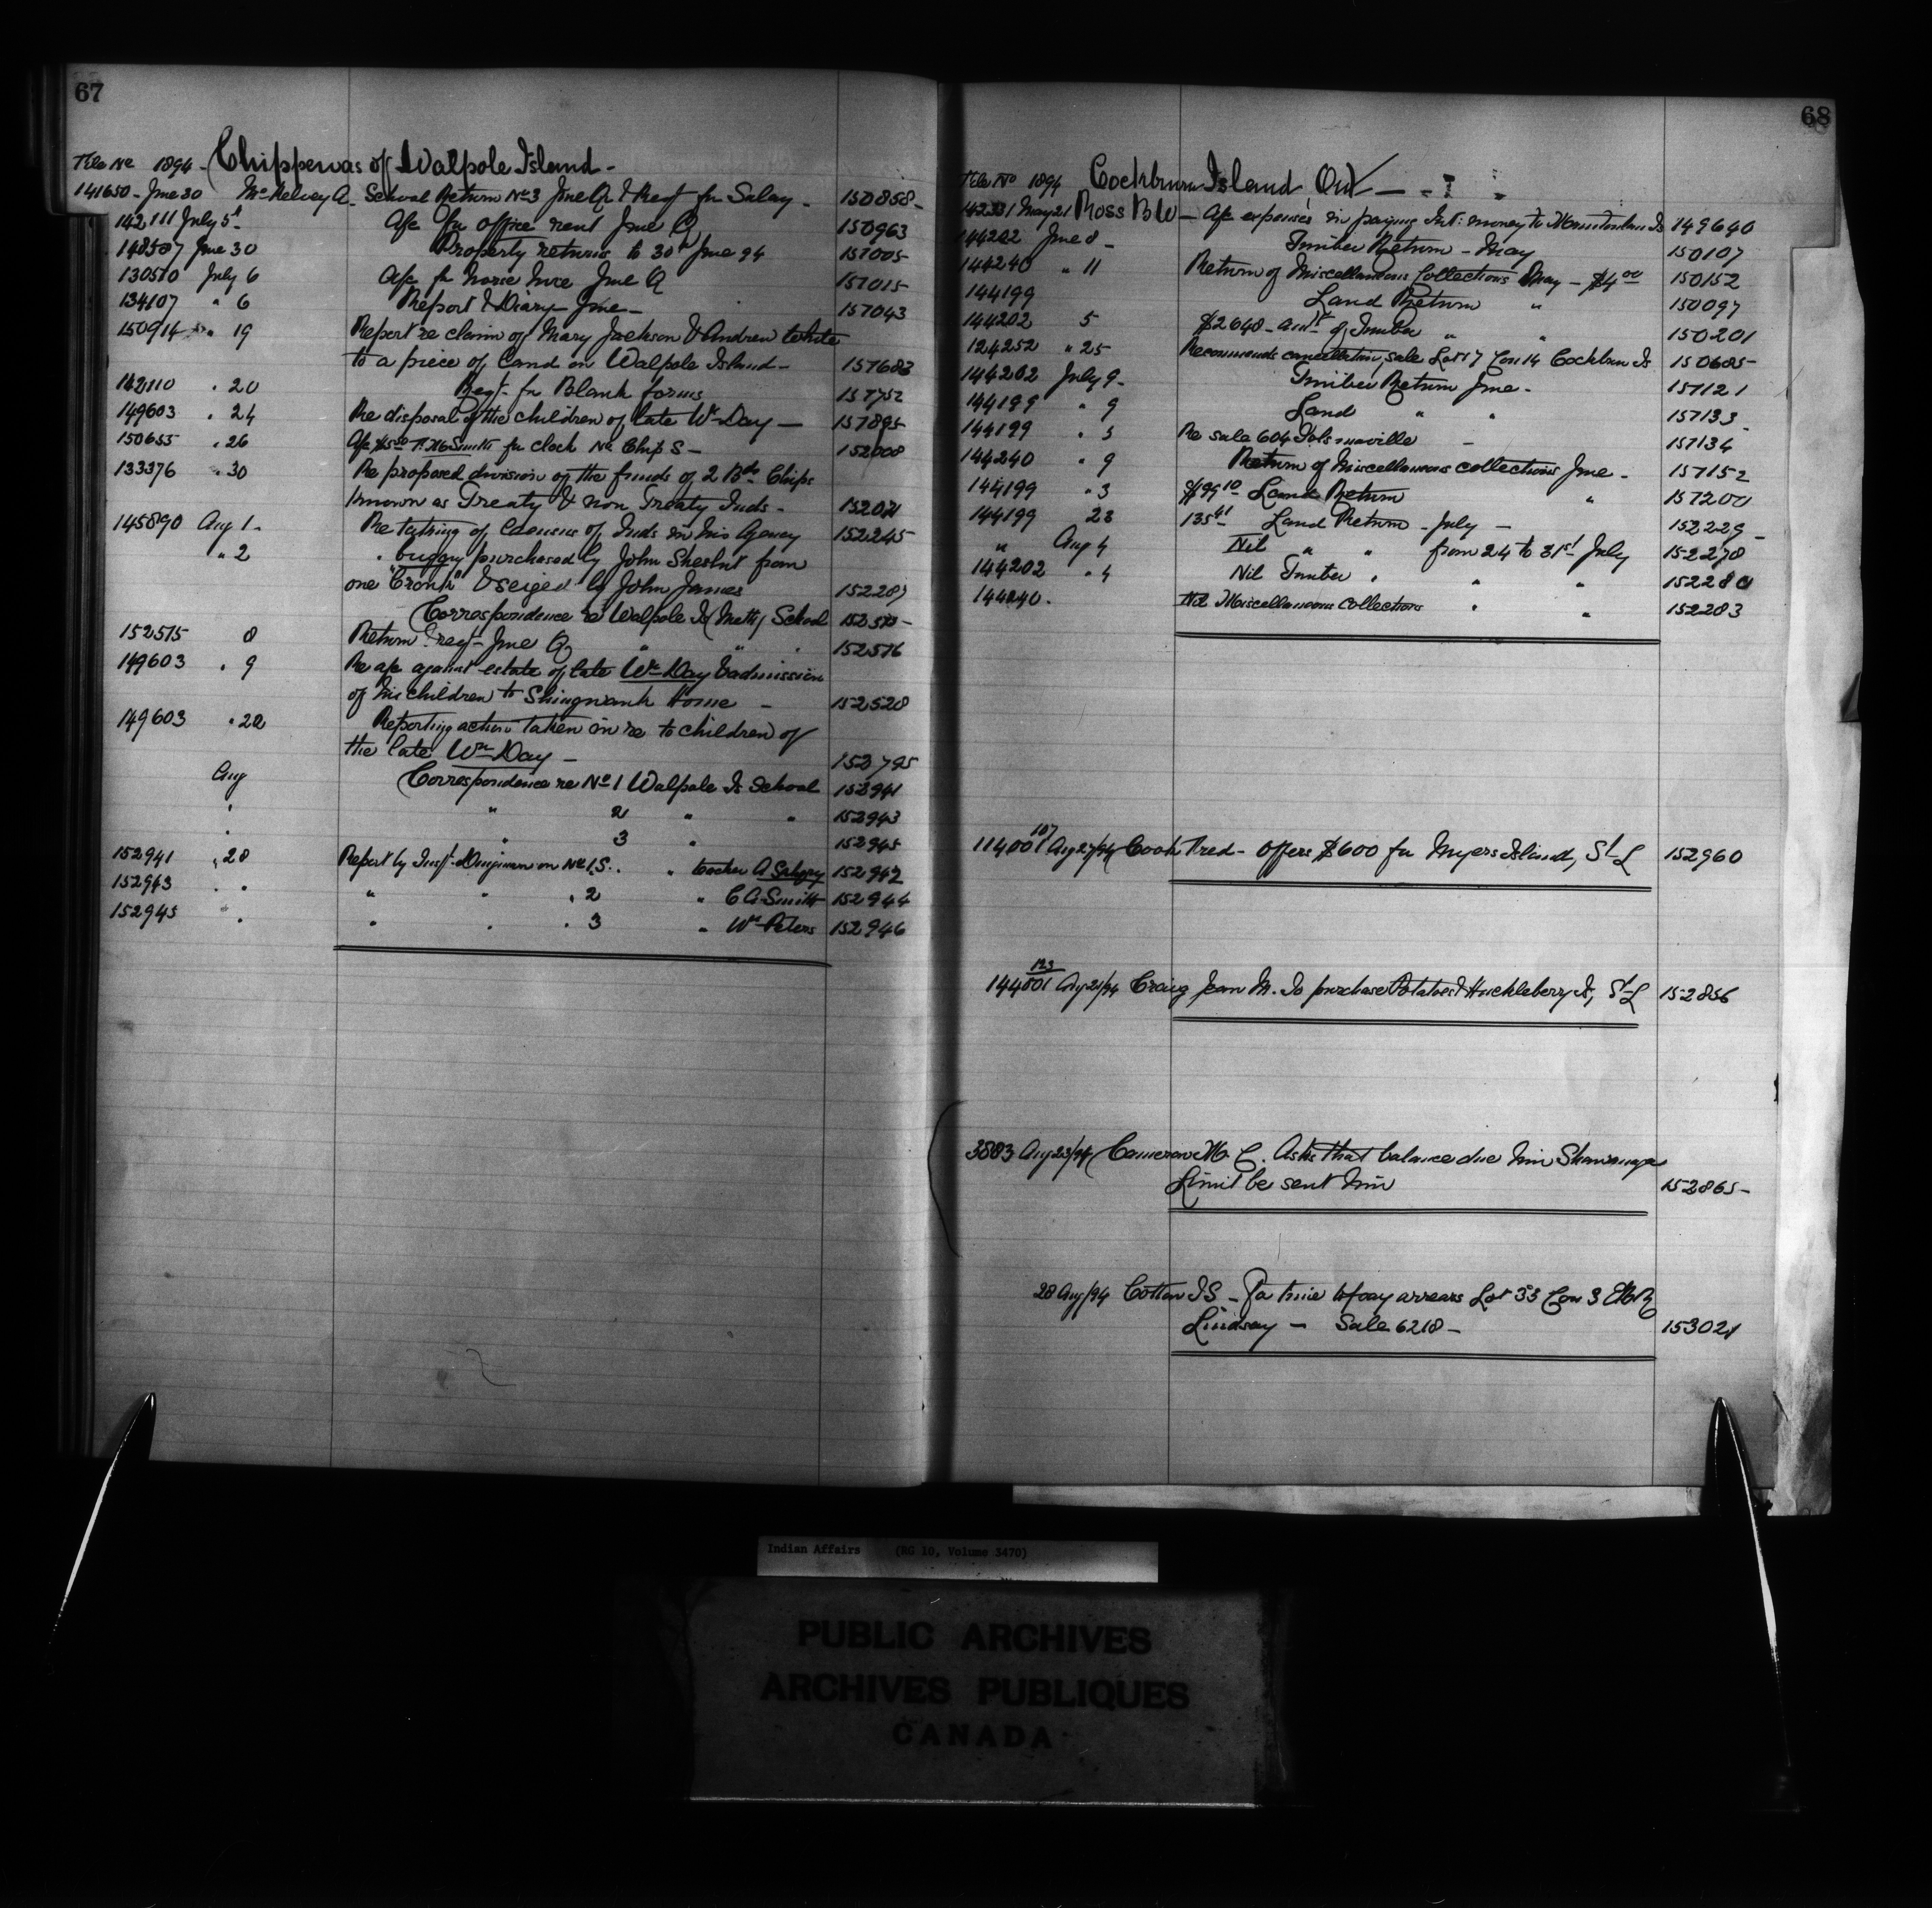 67
File No 1894 - Chippewas of Walpole Island -
141650 - June 30 McKelvey A. School Return No 3 June Q & Req for Salary - 150858 -
142111 July 5 A/c for office rent June Q 150963
148507 June 30 Property returns to 30th June 94 151005
130510 July 6 A/c for horse hire June Q 151015
134107 " 6 Report & Diary - June - 151043
150914 " 19 Report re claim of Mary Jackson & Andrew White
to a piece of Land on Walpole Island - 151683
142110 " 20 Reqt for Blank forms 151752
149603 " 24 Re disposal of the children of late Wm Day - 151895
150655 " 26 A/c $5.00 Smith for clock No Chip S - 152008
133376 " 30 Re proposed division of the funds of 2 Bds Chips
known as Treaty & non Treaty Inds - 152021
145890 Aug 1 - Re taking of Census of Inds in his Agency 152245
" 2 " buggy purchased by John from
one "Cronk" & seized by John James 152287
Correspondence re Walpole Is (Meth) School 152515 -
152515 8 Return & req - June Q " " " 152516
149603 " 9 Re a/c against estate of late Wm Day & admission
of his children to Shingwauk Home - 152528
149603 " 22 Reporting action taken in re to children of
the late Wm Day - 152795
Aug Correspondence re No 1 Walpole Is School 152941
" " 2 " " 152943
" " 3 " 152945
152941 " 28 Report by Inspt Dingman on No 1 S. " teacher A 152942
152943 " " " " " 2 " C A Smith 152944
152945 " " " " 3 " Wm Peters 152946
68
File No 1894 Cockburn Island Ont -
May 21 Ross B W - A/c expenses in paying Int: money to Is 149640
144202 June 8 - Timber Return - May 150107
144240 " 11 Return of Miscellaneous Collections May - $4.00 150152
144199 Land Return " 150097
144202 5 $2640 - Timber " " 150201
124252 " 25 Recommends cancellation, sale Lot 17 Con 14 Cockburn Is 150685
144202 July 9 - Timber Return June - 151121
144199 " 9 Land " " 151133
144199 " 3 Re sale 604 - 151134
144240 " 9 Return of Miscellaneous collections June - 151152
144199 " 3 $99.10 Land Return " 151200
144199 23 135.41 Land Return - July - 152229
" Aug 4 Nil " " from 24 to 31st July 152278
144202 " 4 Nil Timber " " " 152280
144240 . Nil Miscellaneous Collections " " 152283
107
114001 Aug 27/94 Cook Fred - Offers $600 for Myers Island, St L 152960
123
144501 Aug 21/94 Craig Jean M. To purchase Potatoes & Huckleberry Is, St L 152856
3883 Aug 23/94 Cameron M. C. Asks that balance due him Shawanaga
Limit be sent him 152865 -
28 Aug/94 Cotton I S - For time to pay arrears Lot 33 Con 3
Lindsay - Sale 6218 - 153021
Indian Affairs (RG 10, Volume 3470)
PUBLIC ARCHIVES
ARCHIVES PUBLIQUES
CANADA